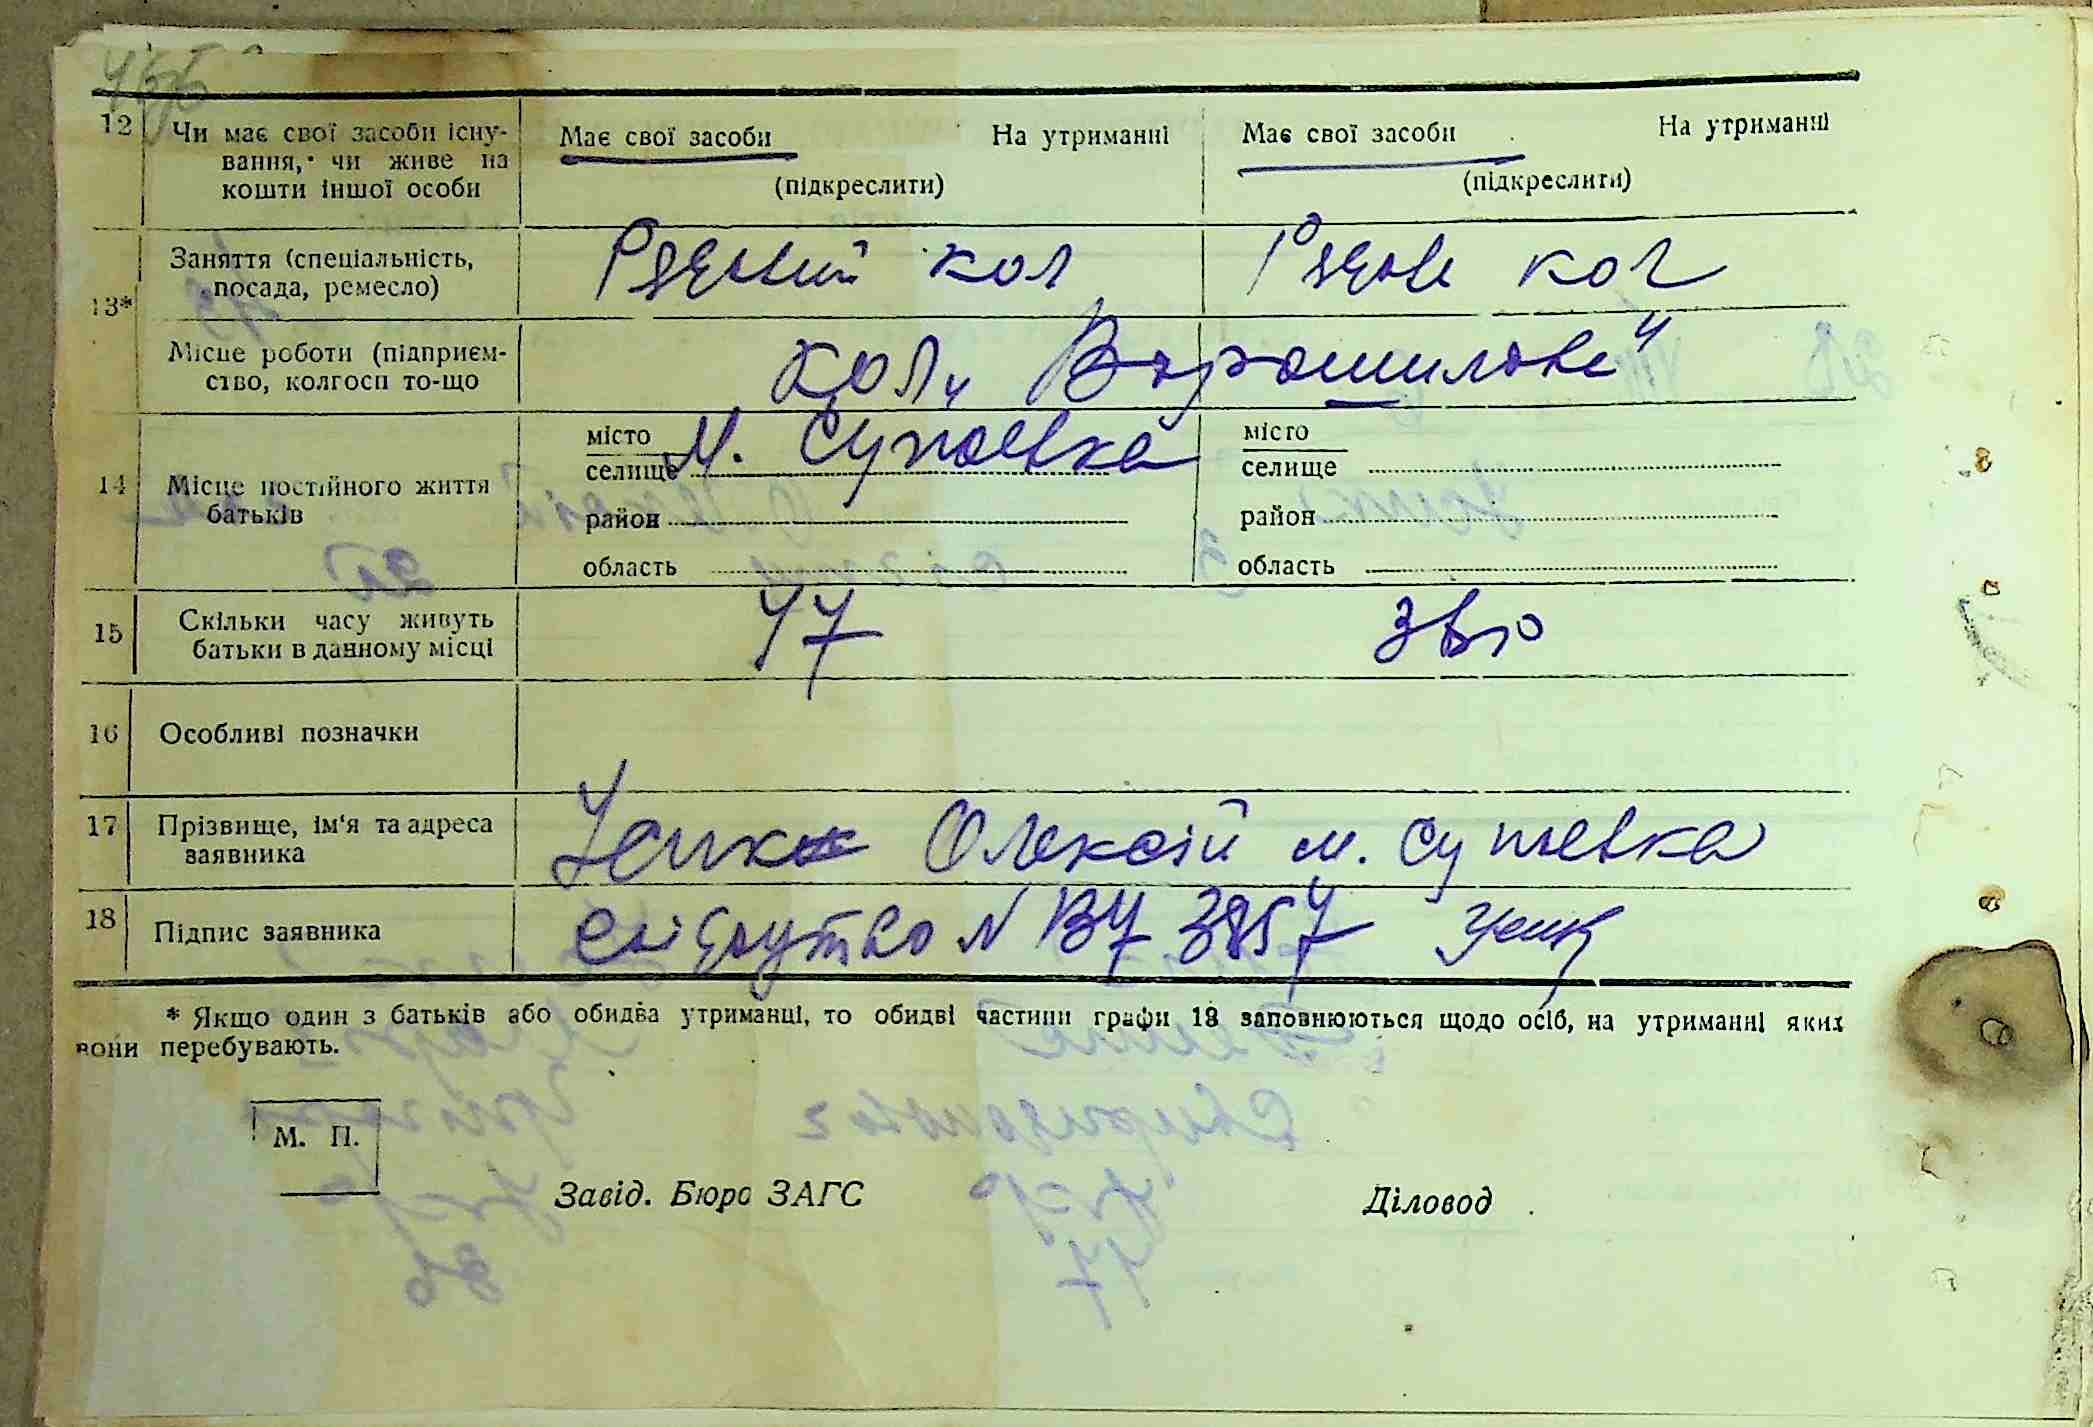 12 Чи має свої засоби існу-
вання, чи живе на
кошти іншої особи
Має свої засоби На утриманні
(підкреслити)
Має свої засоби На утриманні
(підкреслити)
13*
Заняття (спеціальність,
посада, ремесло)
кол
кол
Місце роботи (підприєм-
ство, колгосп то-що
Кол. „Ворошилова"
14 Місце постійного життя
батьків
місто
селище М. Супоевка
район
область
місто
селище
район
область
15 Скільки часу живуть
батьки в данному місці
47
16 Особливі позначки
17 Прізвище, ім'я та адреса
заявника
Усик Олексій м. Супоевка
18 Підпис заявника
N 3857 Усик
* Якщо один з батьків або обидва утриманці, то обидві частини графи 13 заповнюються щодо осіб, на утриманні яких
вони перебувають.
М. П.
Завід. Бюро ЗАГС Діловод